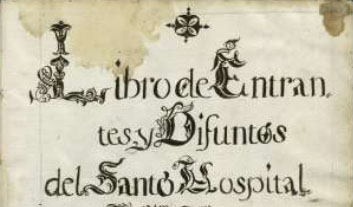 Libro de Entran,
tes, y Difuntos
del Santo Hospital